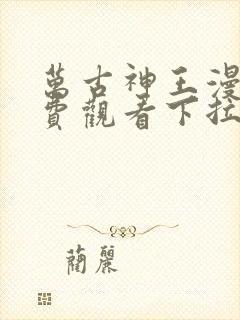 萬古神王漫
費觀看下拉
蘭麗